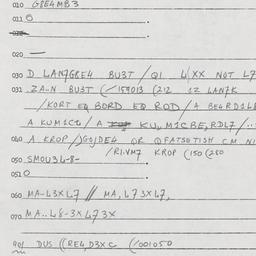 010 G8E4MB3
011 0
020 —
030 D LAN7G8E4 BU3T / Q1 4/XX NOT L7
031 ZA-N BU3T (/159013 (212 12 LAN7K
/KORT EQ BORD EQ ROD / A BE4RD1L8
A KUM1C12 / A KU,,M1CBE,RDL7 /
040 A KROP /)G0JDE4 OR QFATS0T1SH CM N1
/R1.VM7 KROP (150 (280
050 SM0U34-8-
051 0
060 MA-L3XL7 // MA,L73XL7,
070 MA..L8-3XL73X
901 DUS ((RE4,D3XC (/001050